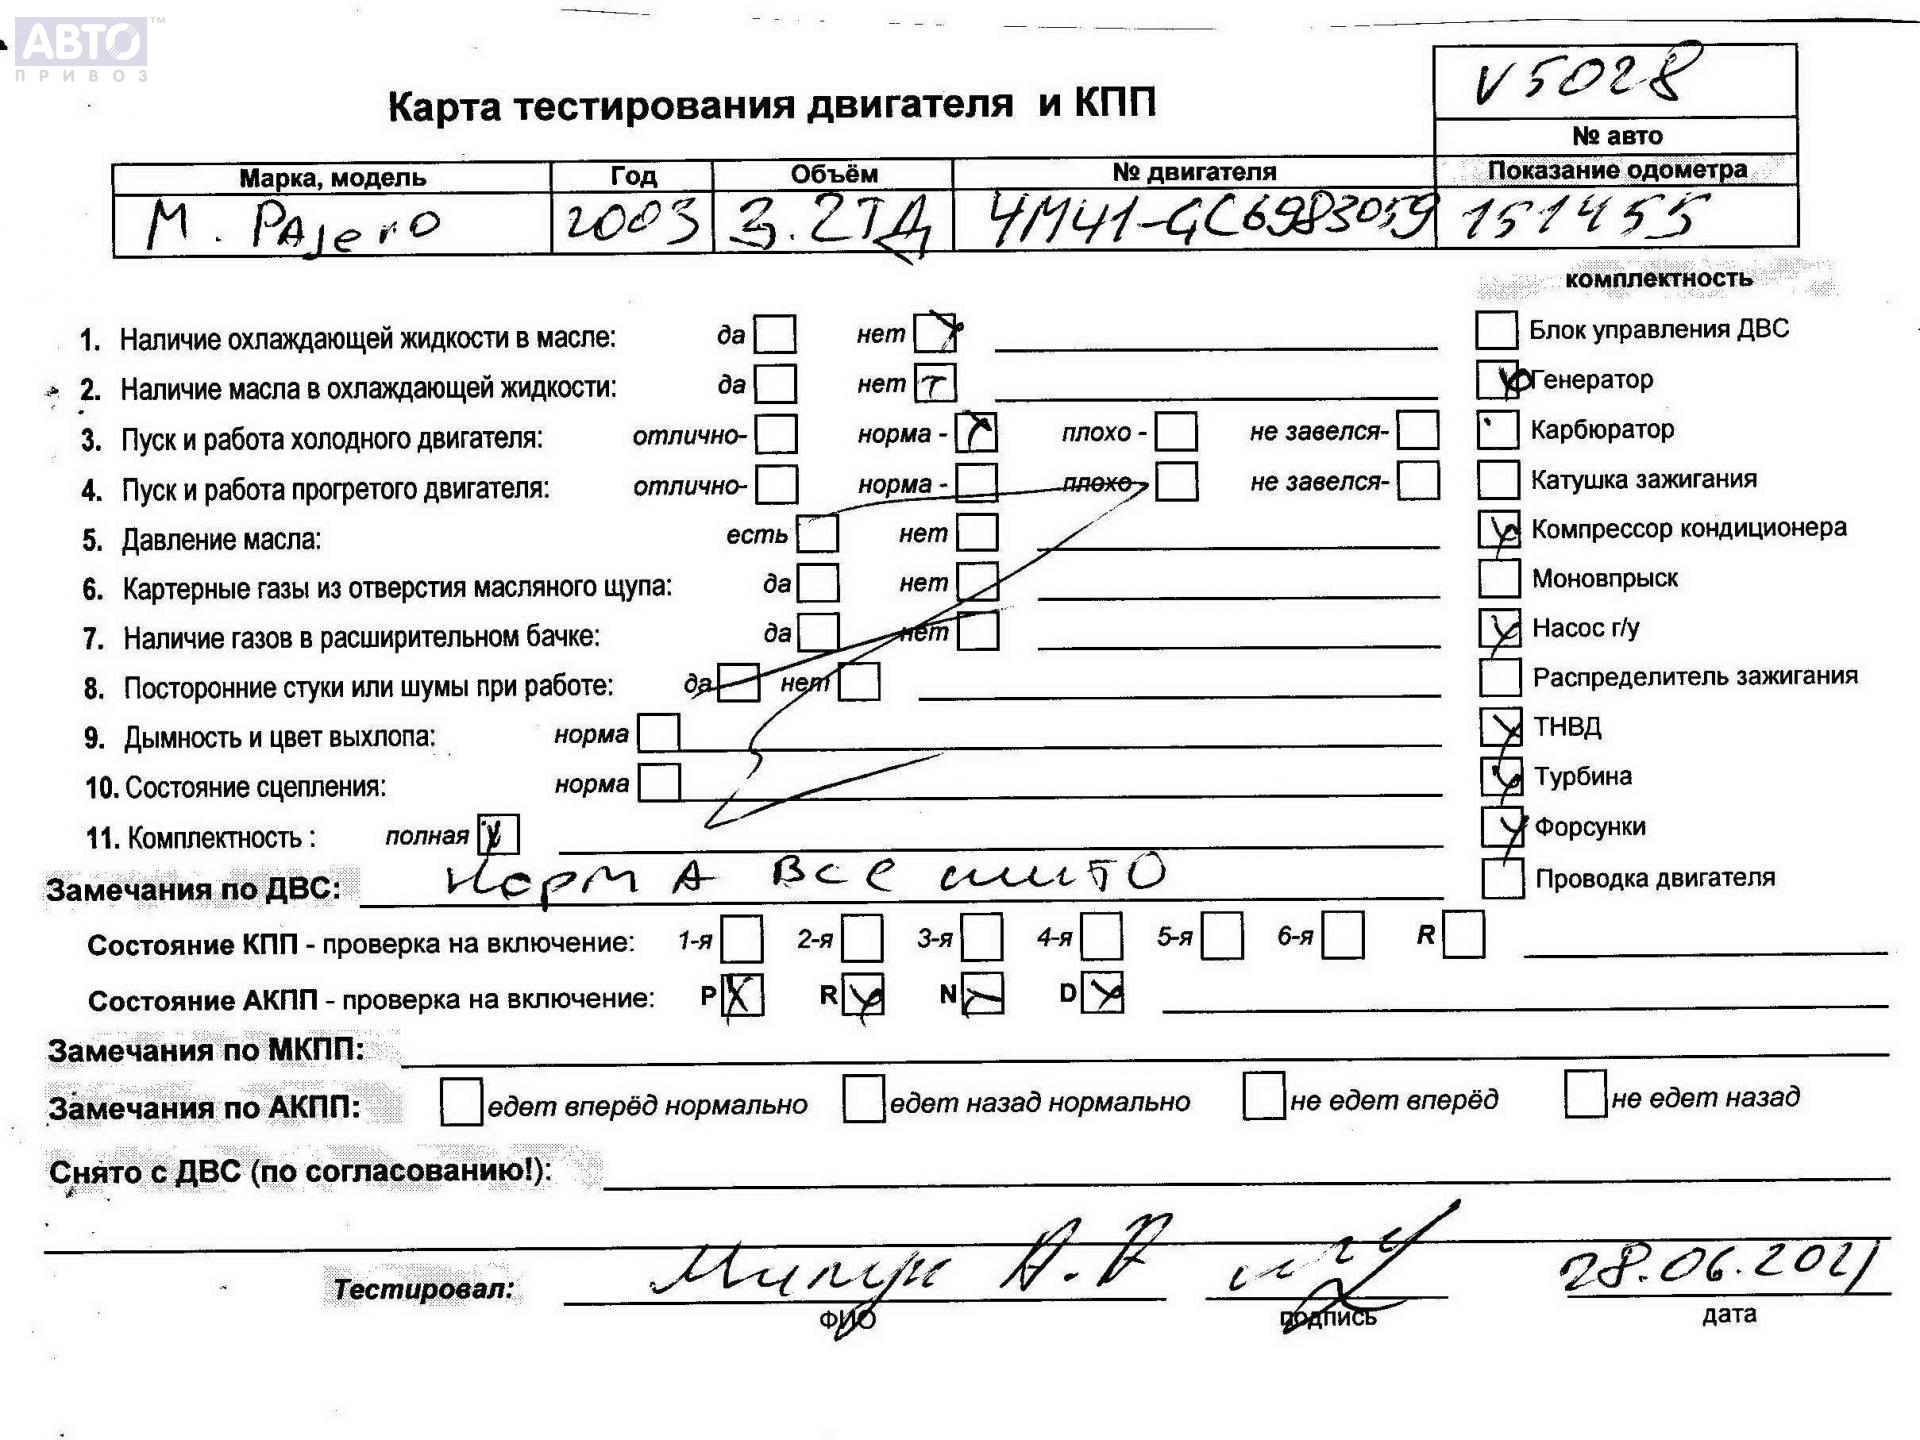 АВТО™
ПРИВОЗ
V5028
Карта тестирования двигателя и КПП
№ авто
Марка, модель Год Объём № двигателя Показание одометра
M. PAJero 2003 3.2ТД 4M41-GC6983059 151455
комплектность
1. Наличие охлаждающей жидкости в масле: да нет
Блок управления ДВС
2. Наличие масла в охлаждающей жидкости: да нет
Генератор
3. Пуск и работа холодного двигателя: отлично- норма - плохо - не завелся-
Карбюратор
4. Пуск и работа прогретого двигателя: отлично- норма - плохо не завелся-
Катушка зажигания
5. Давление масла: есть нет
Компрессор кондиционера
6. Картерные газы из отверстия масляного щупа: да нет
Моновпрыск
7. Наличие газов в расширительном бачке: да нет
Насос г/у
8. Посторонние стуки или шумы при работе: да нет
Распределитель зажигания
9. Дымность и цвет выхлопа: норма
ТНВД
10. Состояние сцепления: норма
Турбина
11. Комплектность : полная
Форсунки
Замечания по ДВС: НормА все
Проводка двигателя
Состояние КПП - проверка на включение: 1-я 2-я 3-я 4-я 5-я 6-я R
Состояние АКПП - проверка на включение: P R N D
Замечания по МКПП:
Замечания по АКПП: едет вперёд нормально едет назад нормально не едет вперёд не едет назад
Снято с ДВС (по согласованию!):
Тестировал: А.А 28.06.2021
ФИО подпись дата